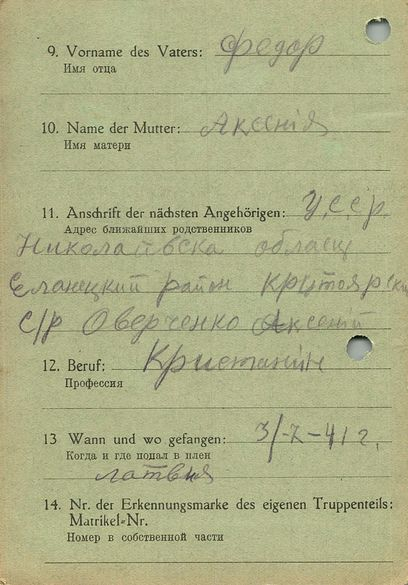 9. Vorname des Vaters: Федор
Имя отца
10. Name der Mutter: Аксенія
Имя матери
11. Anschrift der nächsten Angehörigen: У.С.С.Р.
Адрес ближайших родственников
Николаівска область
Єланецкий район Крутоярски
С/Р Оверченко Аксеній
12. Beruf: Кристанін
Профессия
13 Wann und wo gefangen: 3/-Z-41 г.
Когда и где попал в плен
латвия
14. Nr. der Erkennungsmarke des eigenen Truppenteils:
Matrikel-Nr.
Номер в собственной части